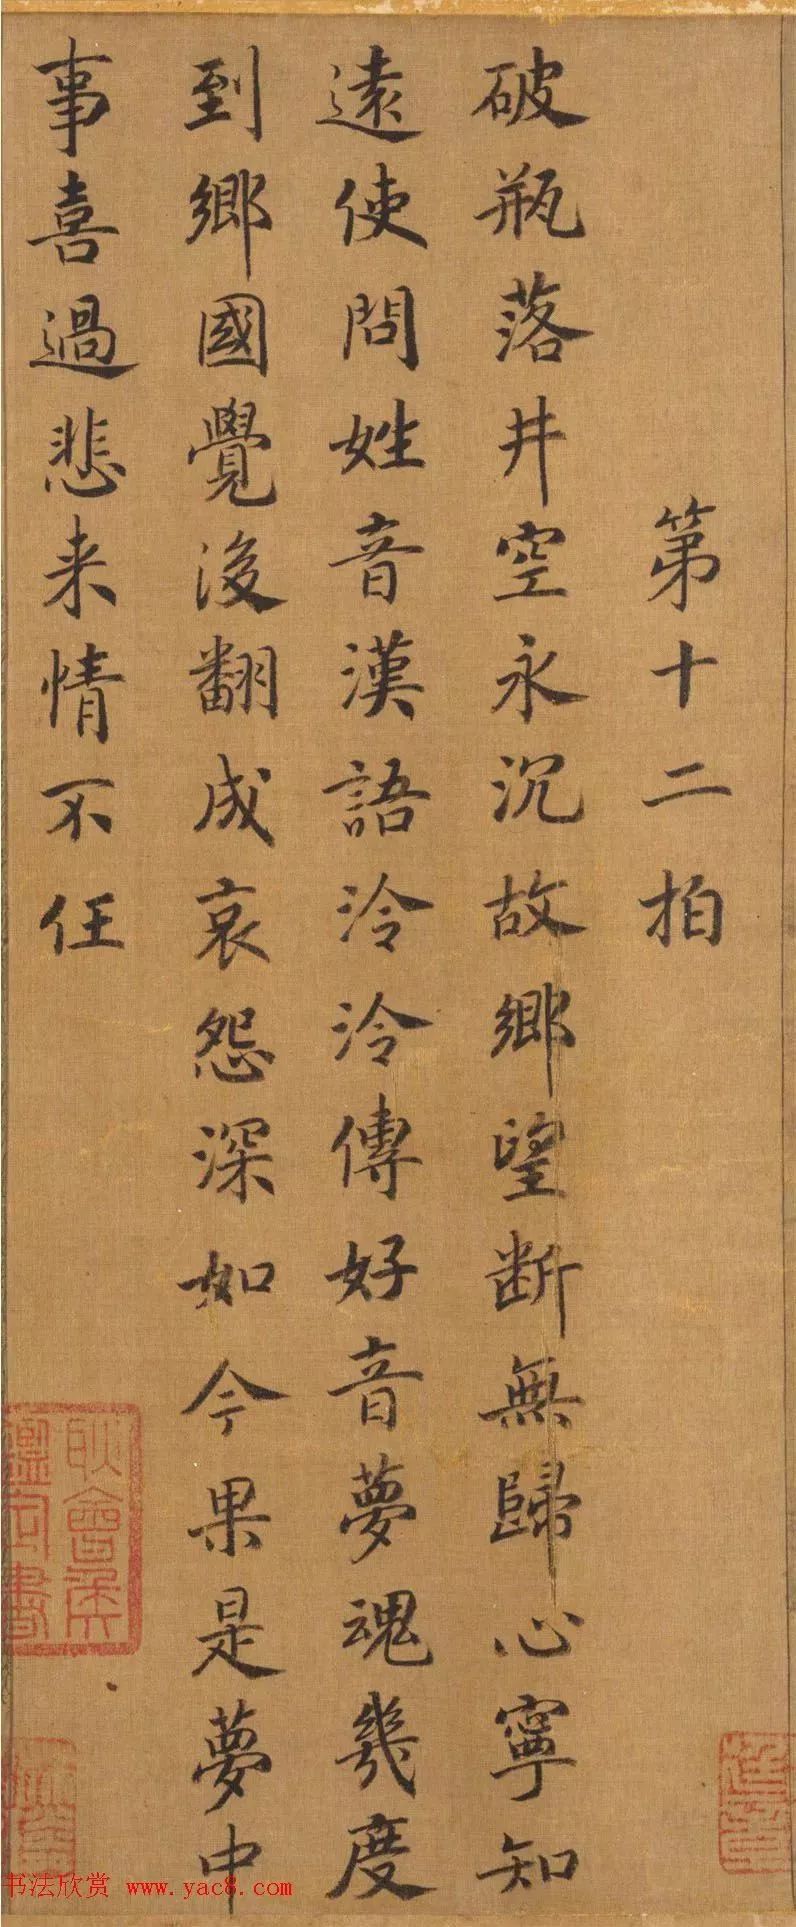 第十二拍
破瓶落井空永沉故鄉望断無歸心寧知
遠使問姓音漢語泠泠傳好音夢魂幾度
到鄉國覺後翻成哀怨深如今果是夢中
事喜過悲来情不任
耿會侯
鑑定書
书法欣赏 www.yac8.com